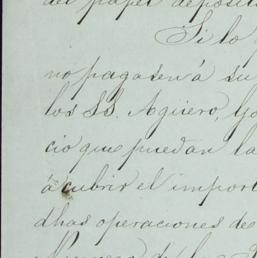 del papel deposit
Si lo
no pagasen á su
los SS. Agüero, Go
cio que puedan la
á cubrir el import
dhas operaciones de